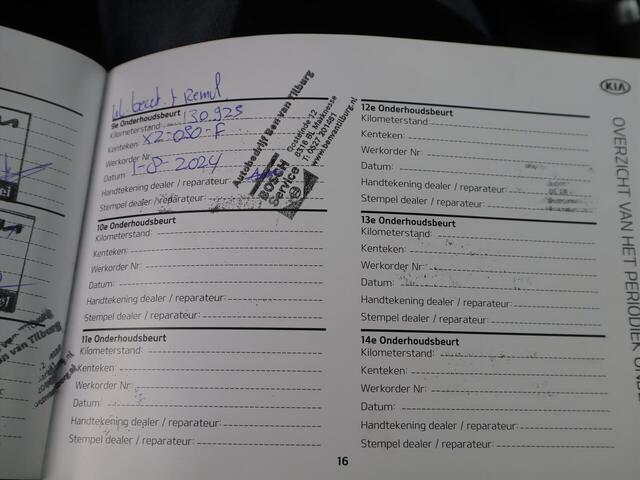 9e Onderhoudsbeurt
Kilometerstand: 130.925
Kenteken: X2-080-F
Werkorder Nr:
Datum: 1-8-2024
Handtekening dealer / reparateur:
Stempel dealer / reparateur:
Autobedrijf Ben van Tilburg
Oosteinde 12
8316 BL Marknesse
T: 0527 201481
www.benvantilburg.nl
BOSCH
Service
10e Onderhoudsbeurt
Kilometerstand:
Kenteken:
Werkorder Nr:
Datum:
Handtekening dealer / reparateur:
Stempel dealer / reparateur:
11e Onderhoudsbeurt
Kilometerstand:
Kenteken:
Werkorder Nr:
Datum:
Handtekening dealer / reparateur:
Stempel dealer / reparateur:
12e Onderhoudsbeurt
Kilometerstand:
Kenteken:
Werkorder Nr:
Datum:
Handtekening dealer / reparateur:
Stempel dealer / reparateur:
13e Onderhoudsbeurt
Kilometerstand:
Kenteken:
Werkorder Nr:
Datum:
Handtekening dealer / reparateur:
Stempel dealer / reparateur:
14e Onderhoudsbeurt
Kilometerstand:
Kenteken:
Werkorder Nr:
Datum:
Handtekening dealer / reparateur:
Stempel dealer / reparateur:
KIA
OVERZICHT VAN HET PERIODIEK
16